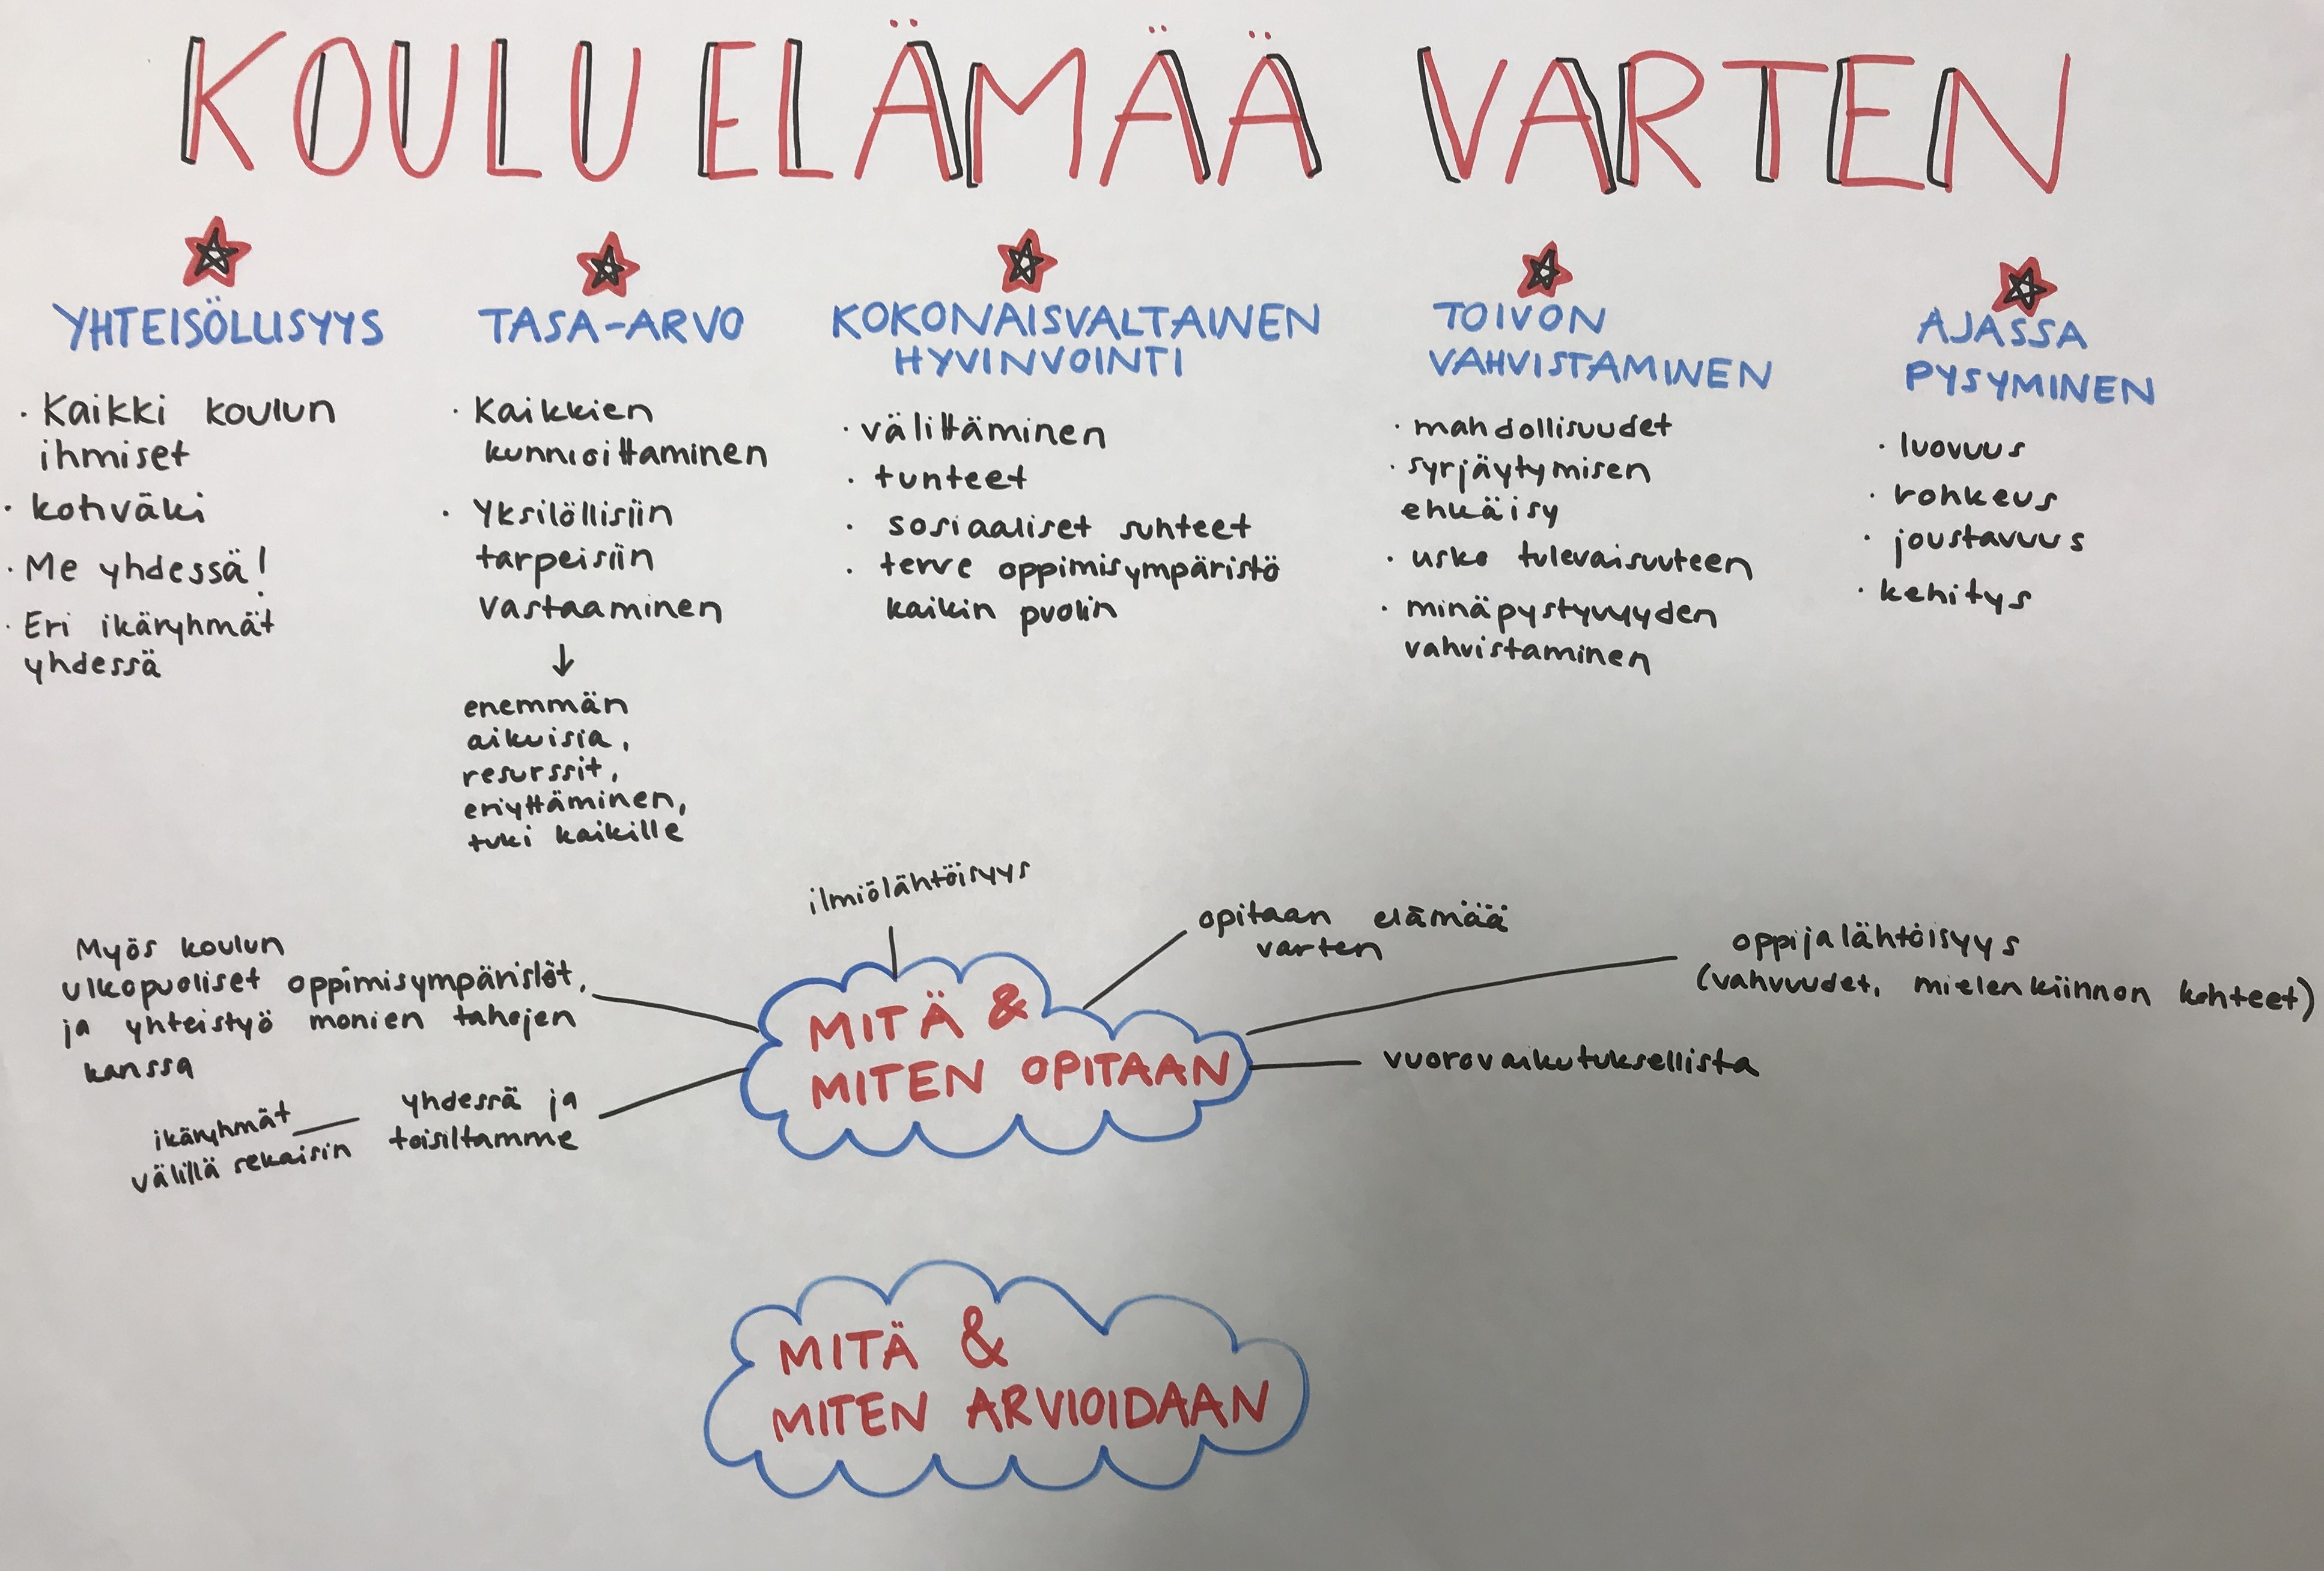 KOULU ELÄMÄÄ VARTEN
YHTEISÖLUSYYS
· Kaikki koulun
ihmiset
· kotiväki
· Me yhdessä!
· Eri ikäryhmät
yhdessä
TASA-ARVO
· Kaikkien
kunnioittaminen
· Yksilöllisiin
tarpeisiin
vastaaminen
↓
enemmän
aikuisia,
resurssit,
eriyttäminen,
tuki kaikille
KOKONAISVALTAINEN
HYVINVOINTI
· välittäminen
· tunteet
· sosiaaliset suhteet
· terve oppimisympäristö
kaikin puolin
TOIVON
VAHVISTAMINEN
· mahdollisuudet
· syrjäytymisen
ehkäisy
· usko tulevaisuuteen
· minäpystyvyyden
vahvistaminen
AJASSA
PYSYMINEN
· luovuus
· rohkeus
· joustavuus
· kehitys
MITÄ &
MITEN OPITAAN
ilmiölähtöisyys
opitaan elämää
varten
oppijalähtöisyys
(vahvuudet, mielenkiinnon kohteet)
vuorovaikutuksellista
Myös koulun
ulkopuoliset oppimisympäristöt,
ja yhteistyö monien tahojen
kanssa
yhdessä ja
toisiltamme
ikäryhmät
välillä sekaisin
MITÄ &
MITEN ARVIOIDAAN